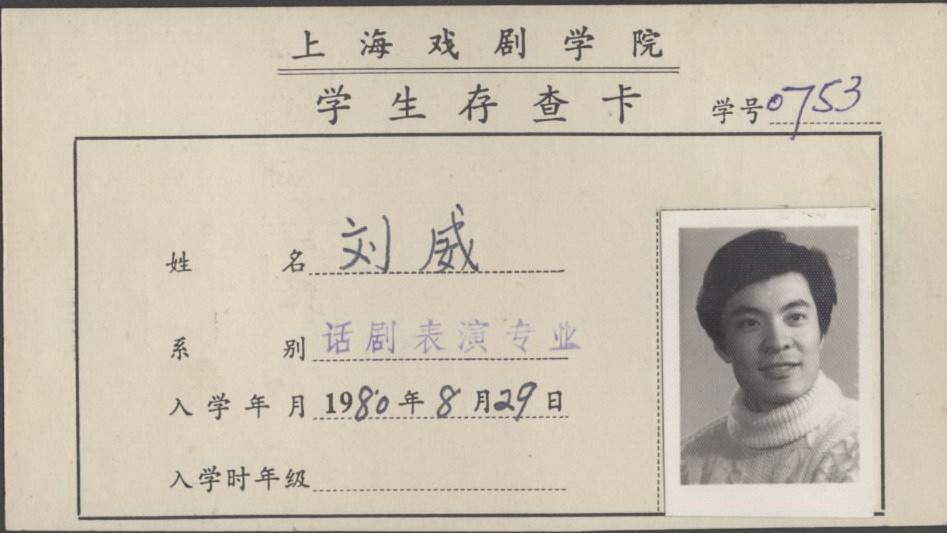 上海戏剧学院
学生存查卡
学号0753
姓名刘威
系别话剧表演专业
入学年月1980年8月29日
入学时年级